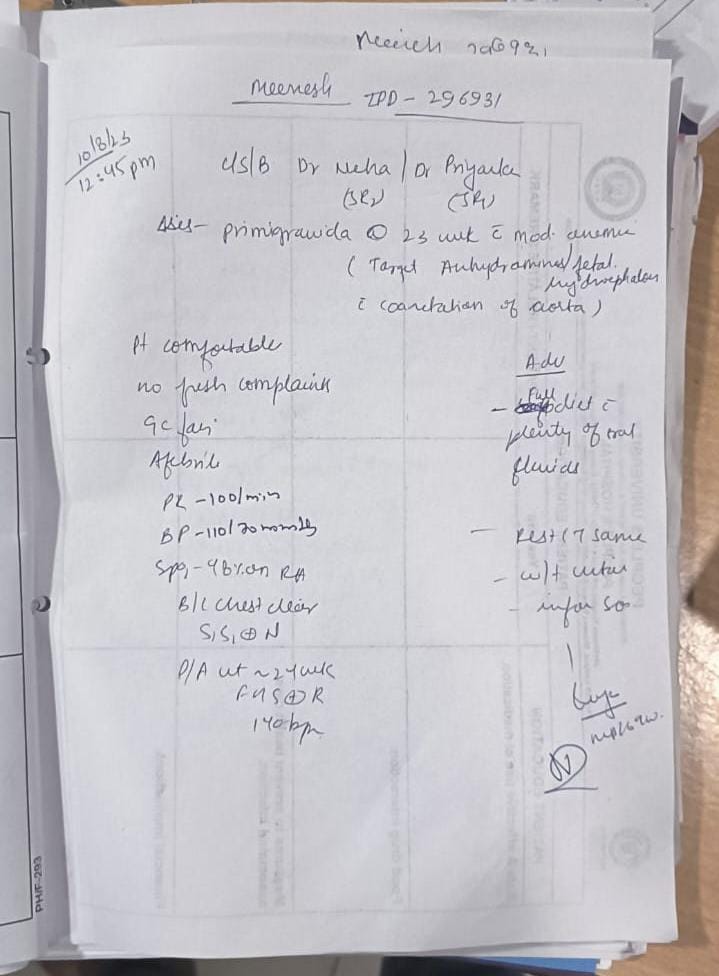 Meenesh 296931
Meenesh IPD - 296931
10/8/23
12:45 pm
C/S/B Dr Neha / Dr Priyanka
(SR) (JR)
primigravida @ 23 wk c̄ mod. anemia
( Target Anhydramnios/fetal.
hydrocephalou
c̄ coarctation of aorta )
Pt comfortable
no fresh complaints
GC fair
Afebrile
PR - 100/min
BP - 110/70 mmHg
SpO2 - 98% on RA
B/L chest clear
S1S2 ⊕ N
P/A ut ~ 24 wk
FHS ⊕ R
140 bpm
Adv
- Full diet c̄
plenty of oral
fluids
- Rest CT same
- w/f
- infor SOS
N
PH/F-293